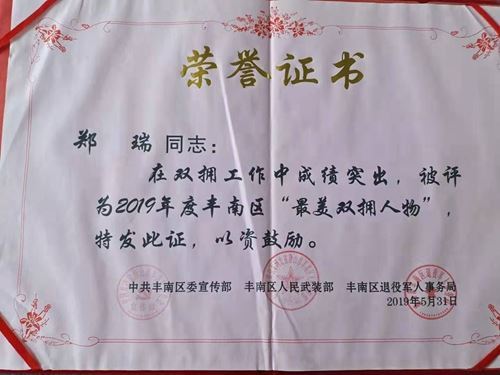 荣誉证书
郑 瑞 同志：
在双拥工作中成绩突出，被评
为2019年度丰南区“最美双拥人物”，
特发此证，以资鼓励。
中共丰南区委宣传部 丰南区人民武装部 丰南区退役军人事务局
2019年5月31日